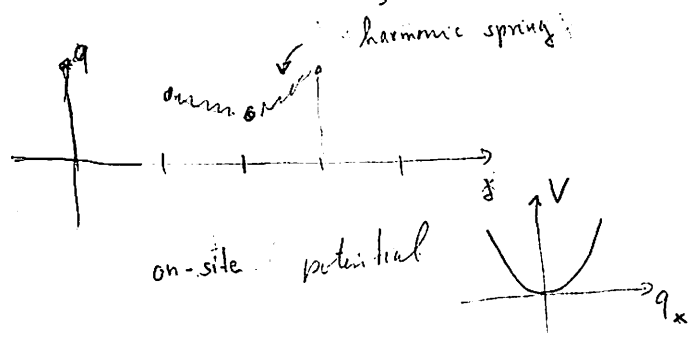 harmonic spring
q
x
V
on-site potential
q_x